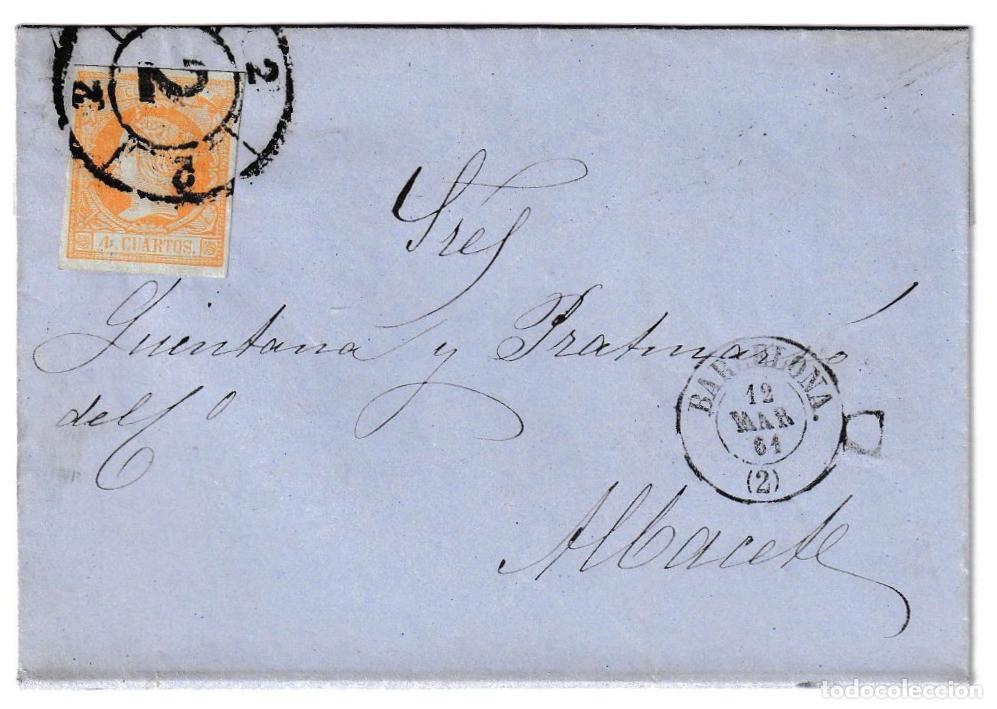 2
2
2
2
4 CUARTOS.
Sres
Quintana y Pratmar
del Cº
BARCELONA.
12
MAR
61
(2)
Albacete
todocoleccion